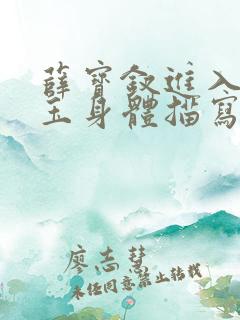 薛寶釵進入
玉身體描寫
廖志慧
未任同意禁止转载